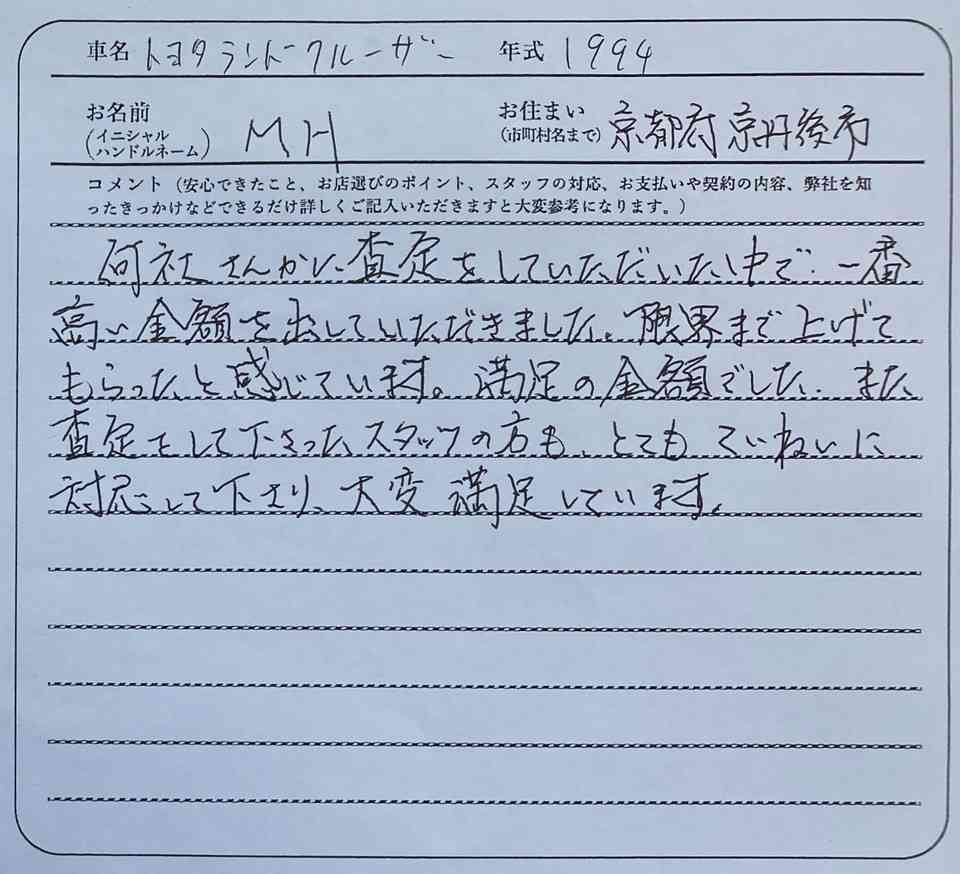 車名 トヨタランドクルーザー 年式 1994
お名前 (イニシャル ハンドルネーム) MH お住まい (市町村名まで) 京都府京丹後市
コメント（安心できたこと、お店選びのポイント、スタッフの対応、お支払いや契約の内容、弊社を知
ったきっかけなどできるだけ詳しくご記入いただきますと大変参考になります。）
何社さんかに査定をしていただいた中で、一番
高い金額を出していただきました。限界まで上げて
もらったと感じています。満足の金額でした。また、
査定をして下さったスタッフの方も、とてもていねいに
対応して下さり、大変満足しています。